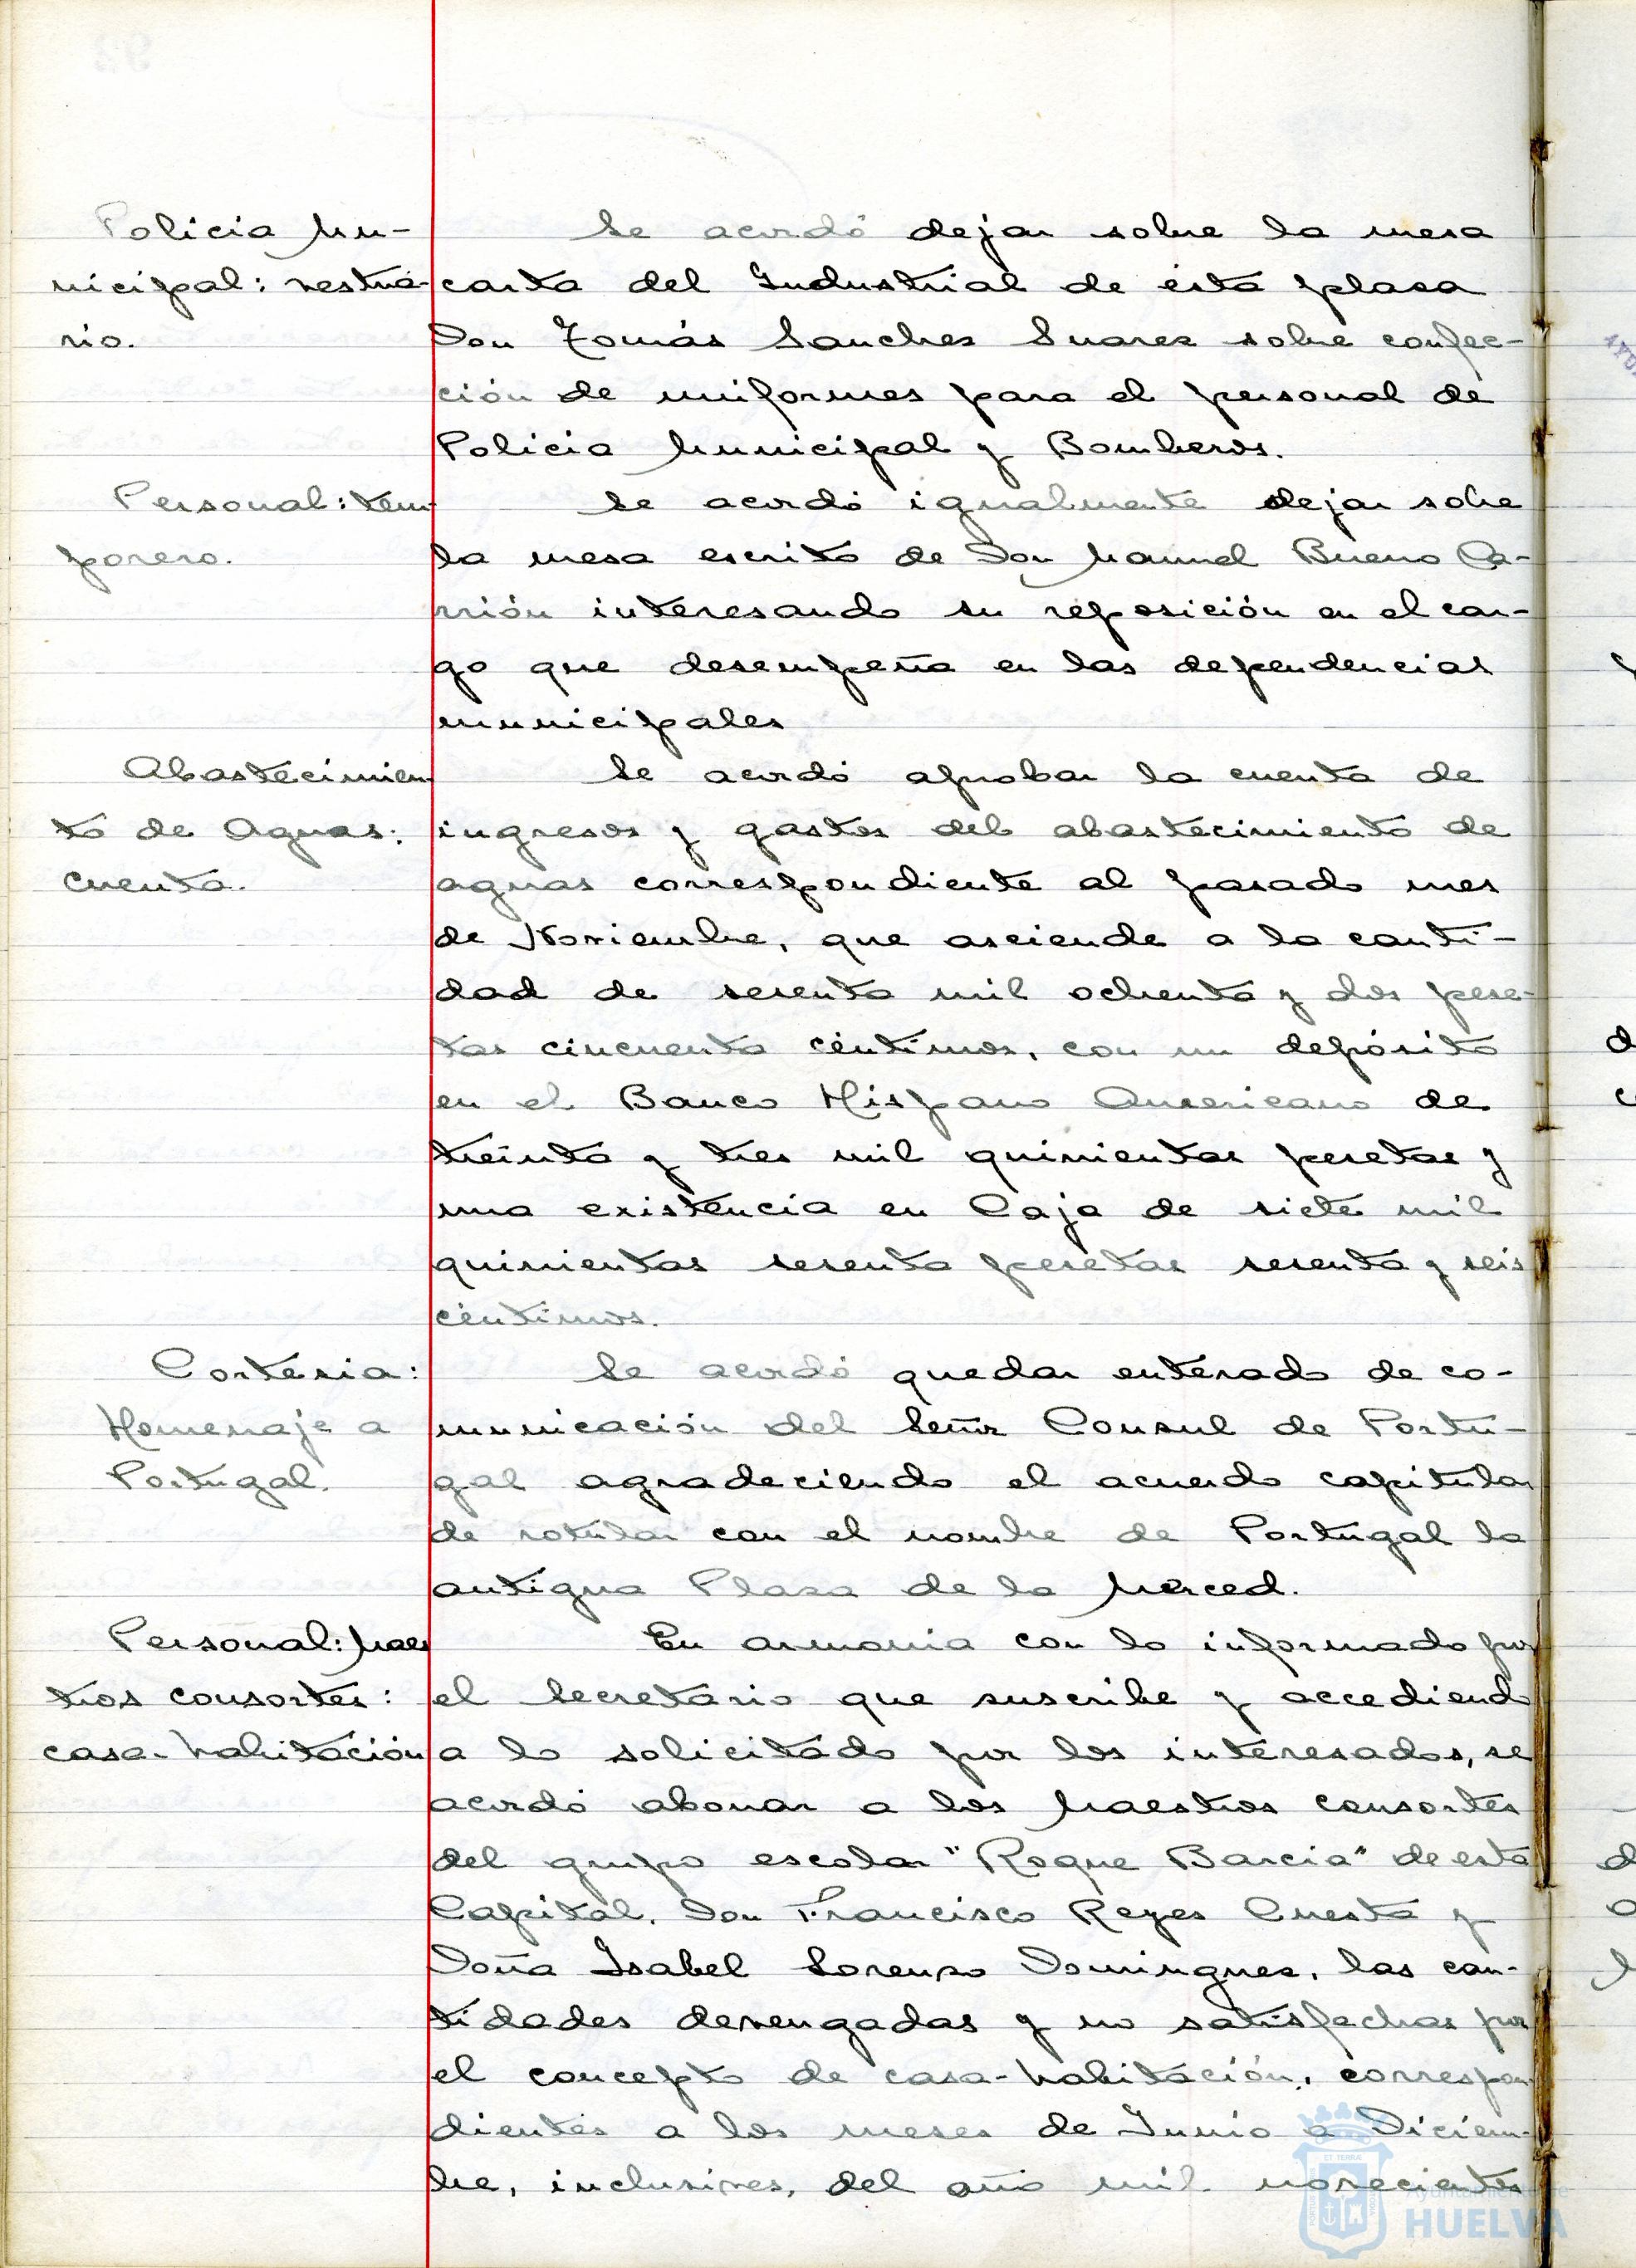 Policia Mu-
nicipal: vestua-
rio.
Se acordó dejar sobre la mesa
carta del Industrial de ésta plaza
Don Tomás Sanchez Suarez sobre confec-
ción de uniformes para el personal de
Policia Municipal y Bomberos.
Personal: tem-
porero.
Se acordó igualmente dejar sobre
la mesa escrito de Don Manuel Bueno Ca-
rrión interesando su reposición en el car-
go que desempeña en las dependencias
municipales
Abastecimien-
to de Aguas:
cuenta.
Se acordó aprobar la cuenta de
ingresos y gastos del abastecimiento de
aguas correspondiente al pasado mes
de Noviembre, que asciende a la canti-
dad de sesenta mil ochenta y dos pese-
tas cincuenta céntimos, con un depósito
en el Banco Hispano Americano de
treinta y tres mil quinientas pesetas y
una existencia en Caja de siete mil
quinientas sesenta pesetas sesenta y seis
céntimos.
Cortesia:
Homenaje a
Portugal.
Se acordó quedar enterado de co-
municación del Señor Consul de Portu-
gal agradeciendo el acuerdo capitular
de rotular con el nombre de Portugal la
antigua Plaza de la Merced.
Personal: Maes
tros consortes:
casa-habitación
En armonia con lo informado por
el Secretario que suscribe y accediendo
a lo solicitado por los interesados, se
acordó abonar a los Maestros consortes
del grupo escolar "Roque Barcia" de esta
Capital, Don Francisco Reyes Cuesta y
Doña Isabel Lorenzo Dominguez, las can-
tidades devengadas y no satisfechas por
el concepto de casa-habitación, correspon-
dientes a los meses de Junio a Diciem-
bre, inclusives, del año mil novecientos
Ayuntamiento de
HUELVA